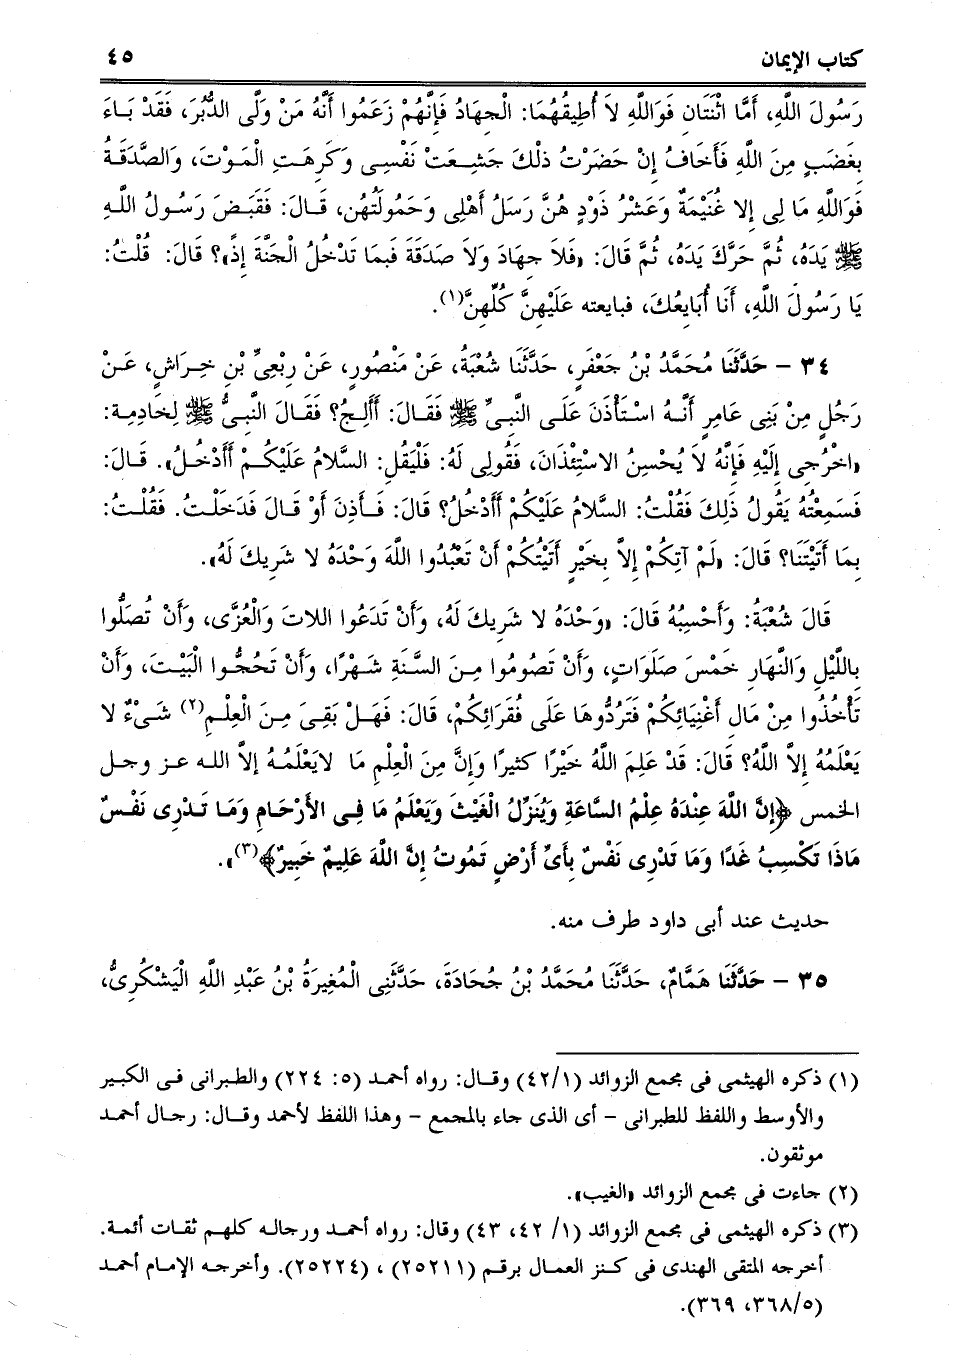 كتاب الإيمان ٤٥
رَسُولَ اللَّهِ، أَمَّا اثْنَتَان فَوَاللَّهِ لاَ أُطِيقُهُمَا: الْجِهَادُ فَإِنَّهُمْ زَعَمُوا أَنَّهُ مَنْ وَلَّى الدُّبُرَ، فَقَدْ بَـاءَ
بِغَضَبٍ مِنَ اللَّهِ فَأَخَافُ إِنْ حَضَرْتُ ذلِكَ جَشِعَتْ نَفْسِى وَكَرِهَتِ الْمَوْتَ، وَالصَّدَقَةُ
فَوَاللَّهِ مَا لِى إِلا غُنَيْمَةٌ وَعَشْرُ ذَوْدٍ هُنَّ رَسَلُ أَهْلِى وَحَمُولَتُهُن، قَـالَ: فَقَبَضَ رَسُـولُ اللَّـهِ
ﷺ يَدَهُ، ثُمَّ حَرَّكَ يَدَهُ، ثُمَّ قَالَ: «فَلاَ جِهَادَ وَلاَ صَدَقَةَ فَبِمَا تَدْخُلُ الْجَنَّةَ إِذًا»؟ قَالَ: قُلْتُ:
يَا رَسُولَ اللَّهِ، أَنَا أُبَايِعُكَ، فبايعته عَلَيْهِنَّ كُلِّهِنَّ(١).
٣٤ – حَدَّثَنَا مُحَمَّدُ بْنُ جَعْفَرٍ، حَدَّثَنَا شُعْبَةُ، عَنْ مَنْصُورٍ، عَنْ رِبْعِىِّ بْنِ خِـرَاشٍ، عَـنْ
رَجُلٍ مِنْ بَنِى عَامِرٍ أَنَّـهُ اسْـتَأْذَنَ عَلَـى النَّبِـىِّ ﷺ فَقَالَ: أَأَلِـجُ؟ فَقَالَ النَّبِىُّ ﷺ لِخَادِمِهِ:
«اخْرُجِى إِلَيْهِ فَإِنَّهُ لاَ يُحْسِنُ الاسْتِئْذَانَ، فَقُولِى لَهُ: فَلْيَقُلِ: السَّلاَمُ عَلَيْكُـمْ أَأَدْخُـلُ». قَـالَ:
فَسَمِعْتُهُ يَقُولُ ذَلِكَ فَقُلْتُ: السَّلاَمُ عَلَيْكُمْ أَأَدْخُلُ؟ قَالَ: فَـأَذِنَ أَوْ قَـالَ فَدَخَلْـتُ. فَقُلْـتُ:
بِمَا أَتَيْتَنَا؟ قَالَ: «لَمْ آتِكُمْ إِلاَّ بِخَيْرٍ أَتَيْتُكُمْ أَنْ تَعْبُدُوا اللَّهَ وَحْدَهُ لا شَرِيكَ لَهُ».
قَالَ شُعْبَةُ: وَأَحْسِبُهُ قَالَ: «وَحْدَهُ لا شَرِيكَ لَهُ، وَأَنْ تَدَعُوا اللاتَ وَالْعُزَّى، وَأَنْ تُصَلُّوا
بِاللَّيْلِ وَالنَّهَارِ خَمْسَ صَلَوَاتٍ، وَأَنْ تَصُومُوا مِـنَ السَّـنَةِ شَـهْرًا، وَأَنْ تَحُجُّـوا الْبَيْـتَ، وَأَنْ
تَأْخُذُوا مِنْ مَالِ أَغْنِيَائِكُمْ فَتَرُدُّوهَا عَلَى فُقَرَائِكُمْ، قَالَ: فَهَـلْ بَقِـىَ مِـنَ الْعِلْـمِ(٢) شَـىْءٌ لا
يَعْلَمُهُ إِلاَّ اللَّهُ؟ قَالَ: قَدْ عَلِمَ اللَّهُ خَيْرًا كَثِيرًا وَإِنَّ مِنَ الْعِلْمِ مَا لايَعْلَمُـهُ إِلاَّ اللـه عـز وجـل
الخمس ﴿إِنَّ اللَّهَ عِنْدَهُ عِلْمُ السَّاعَةِ وَيُنَزِّلُ الْغَيْثَ وَيَعْلَمُ مَا فِـى الأَرْحَـامِ وَمَـا تَـدْرِى نَفْـسٌ
مَاذَا تَكْسِبُ غَدًا وَمَا تَدْرِى نَفْسٌ بِأَىِّ أَرْضٍ تَمُوتُ إِنَّ اللَّهَ عَلِيمٌ خَبِيرٌ﴾(٣)».
حديث عند أبى داود طرف منه.
٣٥ – حَدَّثَنَا هَمَّامٌ، حَدَّثَنَا مُحَمَّدُ بْنُ جُحَادَةَ، حَدَّثَنِى الْمُغِيرَةُ بْنُ عَبْدِ اللَّهِ الْيَشْكُرِىُّ،
(١) ذكره الهيثمى فى مجمع الزوائد (٤٢/١) وقـال: رواه أحمـد (٥: ٢٢٤) والطبرانى فـى الكبير
والأوسط واللفظ للطبرانى – أى الذى جاء بالمجمع – وهذا اللفظ لأحمد وقـال: رجـال أحمـد
موثقون.
(٢) جاءت فى مجمع الزوائد «الغيب».
(٣) ذكره الهيثمى فى مجمع الزوائد (١/ ٤٢، ٤٣) وقال: رواه أحمـد ورجالـه كلهـم ثقـات أئمـة.
أخرجه المتقى الهندى فى كنز العمال برقم (٢٥٢١١) ، (٢٥٢٢٤). وأخرجـه الإمـام أحمـد
(٣٦٨/٥، ٣٦٩).